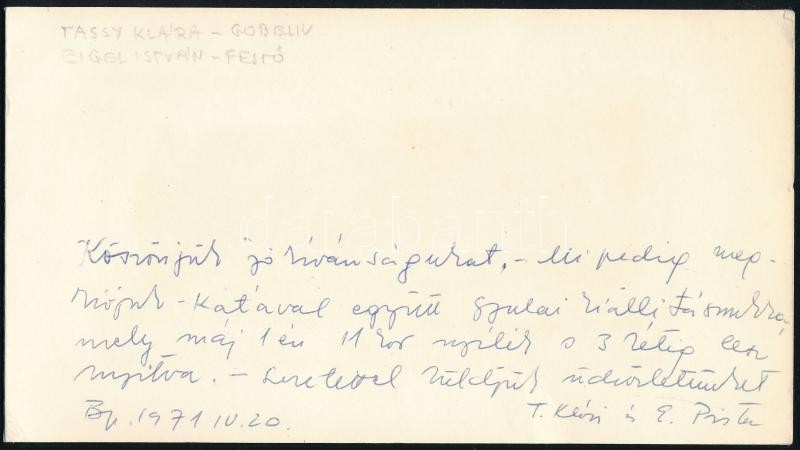 TASSY KLÁRA - GOBELIN
EIGEL ISTVÁN - FESTŐ
darabanth
Köszönjük jókívánságukat, - Mi pedig meg-
hívjuk - Katával együtt gyulai kiállításunkra,
mely máj 1 én 11 kor nyílik s 3 hétig lesz
nyitva. - Szeretettel küldjük üdvözletünket
Bp. 1971 IV. 20.
T. Klári és E. Pista